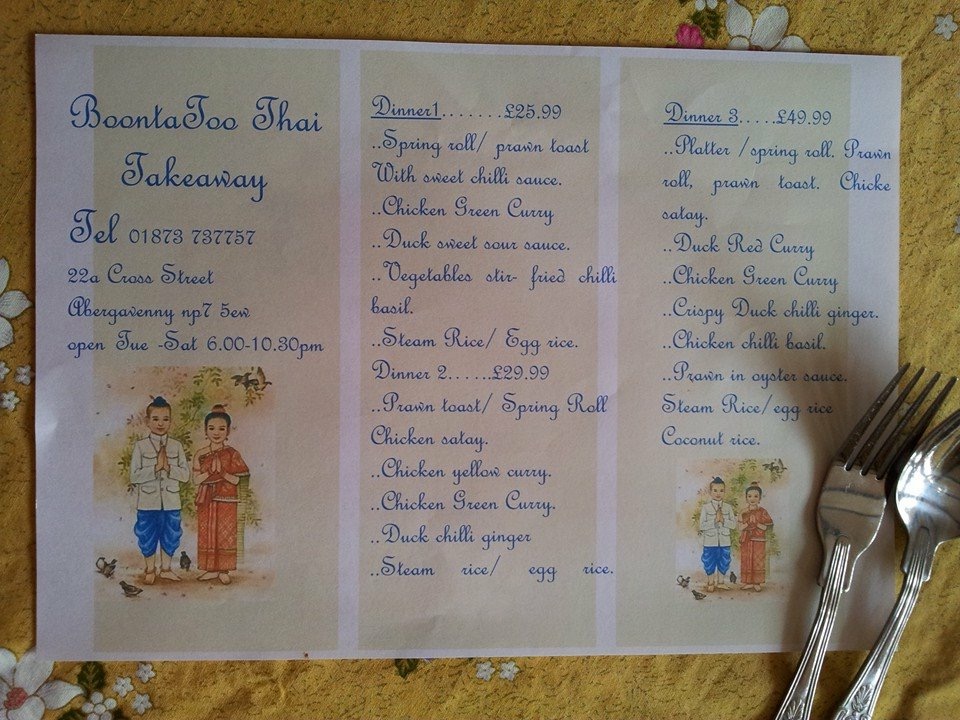 BoontaToo Thai
Takeaway
Tel 01873 737757
22a Cross Street
Abergavenny np7 5ew
open Tue -Sat 6.00-10.30pm
Dinner1.......£25.99
..Spring roll/ prawn toast
With sweet chilli sauce.
..Chicken Green Curry
..Duck sweet sour sauce.
..Vegetables stir- fried chilli
basil.
..Steam Rice/ Egg rice.
Dinner 2......£29.99
..Prawn toast/ Spring Roll
Chicken satay.
..Chicken yellow curry.
..Chicken Green Curry.
..Duck chilli ginger
..Steam rice/ egg rice.
Dinner 3.....£49.99
..Platter /spring roll. Prawn
roll, prawn toast. Chicke
satay.
..Duck Red Curry
..Chicken Green Curry
..Crispy Duck chilli ginger.
..Chicken chilli basil.
..Prawn in oyster sauce.
Steam Rice/egg rice
Coconut rice.